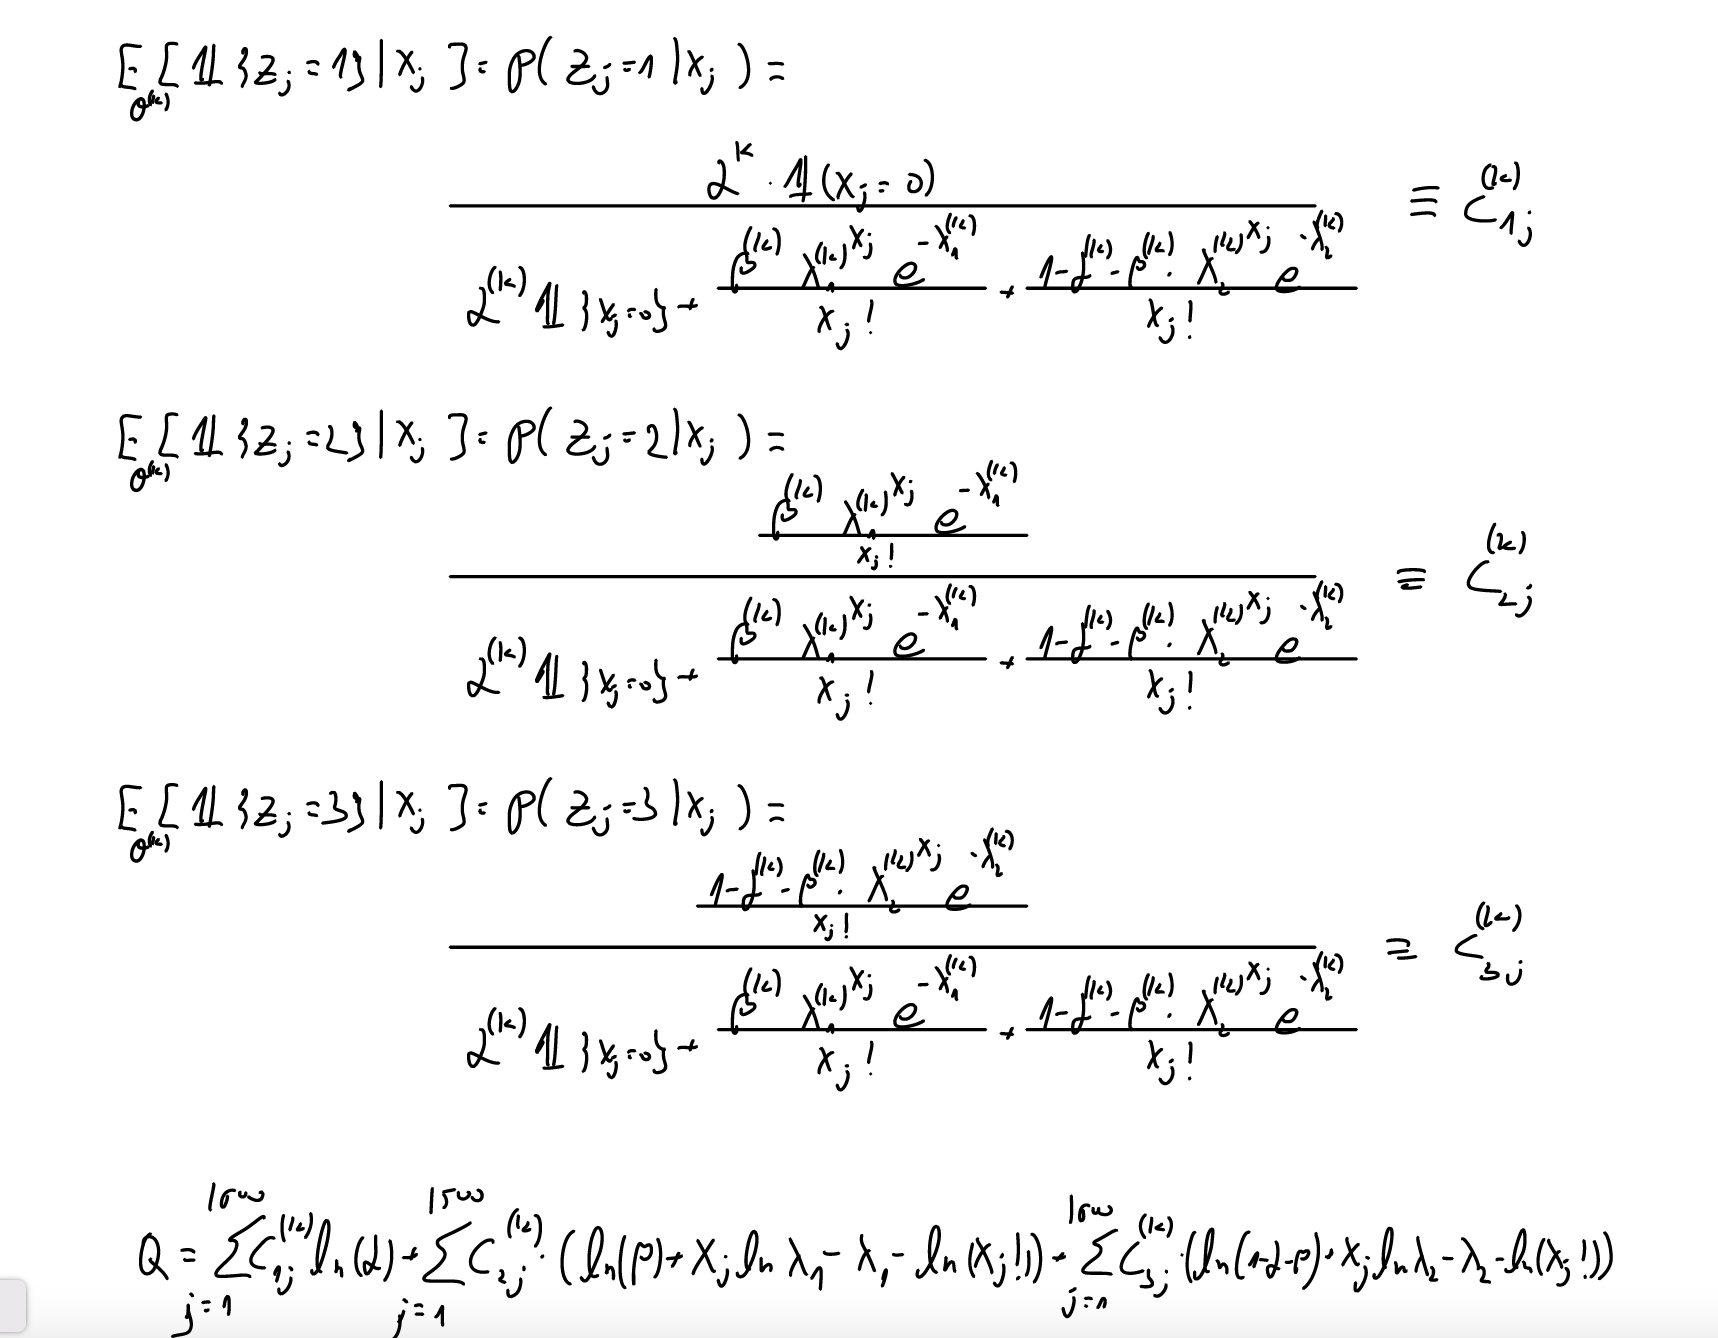 E_{θ^{(k)}}[𝟙{z_j=1}|x_j]=p(z_j=1|x_j)=
\frac{α^k · 𝟙(x_j=0)}{α^{(k)} 𝟙{x_j=0} + \frac{β^{(k)} λ_1^{(k) x_j} e^{-λ_1^{(k)}}}{x_j!} + \frac{1-α^{(k)}-β^{(k)} · λ_2^{(k) x_j} e^{-λ_2^{(k)}}}{x_j!}} ≡ C_{1j}^{(k)}
E_{θ^{(k)}}[𝟙{z_j=2}|x_j]=p(z_j=2|x_j)=
\frac{\frac{β^{(k)} λ_1^{(k) x_j} e^{-λ_1^{(k)}}}{x_j!}}{α^{(k)} 𝟙{x_j=0} + \frac{β^{(k)} λ_1^{(k) x_j} e^{-λ_1^{(k)}}}{x_j!} + \frac{1-α^{(k)}-β^{(k)} · λ_2^{(k) x_j} e^{-λ_2^{(k)}}}{x_j!}} ≡ C_{2j}^{(k)}
E_{θ^{(k)}}[𝟙{z_j=3}|x_j]=p(z_j=3|x_j)=
\frac{\frac{1-α^{(k)}-β^{(k)} · λ_2^{(k) x_j} e^{-λ_2^{(k)}}}{x_j!}}{α^{(k)} 𝟙{x_j=0} + \frac{β^{(k)} λ_1^{(k) x_j} e^{-λ_1^{(k)}}}{x_j!} + \frac{1-α^{(k)}-β^{(k)} · λ_2^{(k) x_j} e^{-λ_2^{(k)}}}{x_j!}} ≡ C_{3j}^{(k)}
Q = \sum_{j=1}^{1500} C_{1j}^{(k)} ln(α) + \sum_{j=1}^{1500} C_{2j}^{(k)} · (ln(β) + x_j ln λ_1 - λ_1 - ln(x_j!)) + \sum_{j=1}^{1500} C_{3j}^{(k)} · (ln(1-α-β) + x_j ln λ_2 - λ_2 - ln(x_j!))